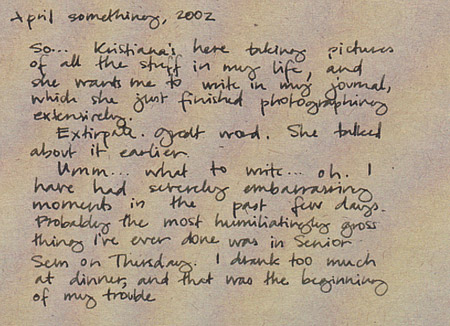 April something, 2002
So... Kristiana's here taking pictures
of all the stuff in my life, and
she wants me to write in my journal,
which she just finished photographing
extensively.
Extirpate. great word. She talked
about it earlier.
Umm... what to write... oh. I
have had severely embarrassing
moments in the past few days.
Probably the most humiliatingly gross
thing I've ever done was in Senior
Sem on Thursday. I drank too much
at dinner, and that was the beginning
of my trouble